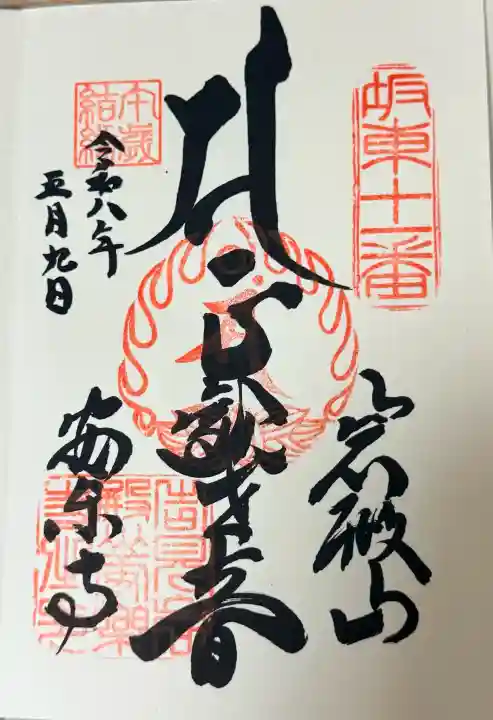 坂東十一番
岩殿山
正観世音
午歳
結縁
令和八年
五月九日
安楽寺